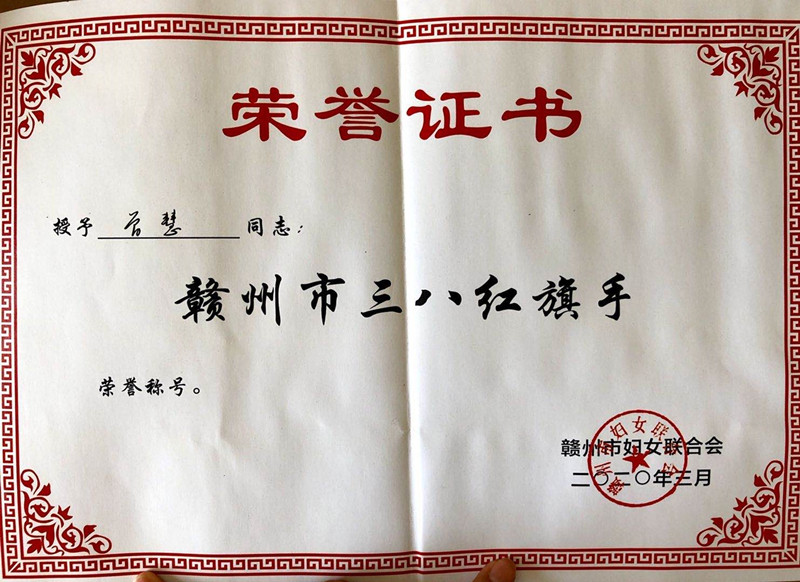 荣誉证书
授予 曾慧 同志：
赣州市三八红旗手
荣誉称号。
赣州市妇女联合会
二〇二〇年三月
赣州市妇女联合会